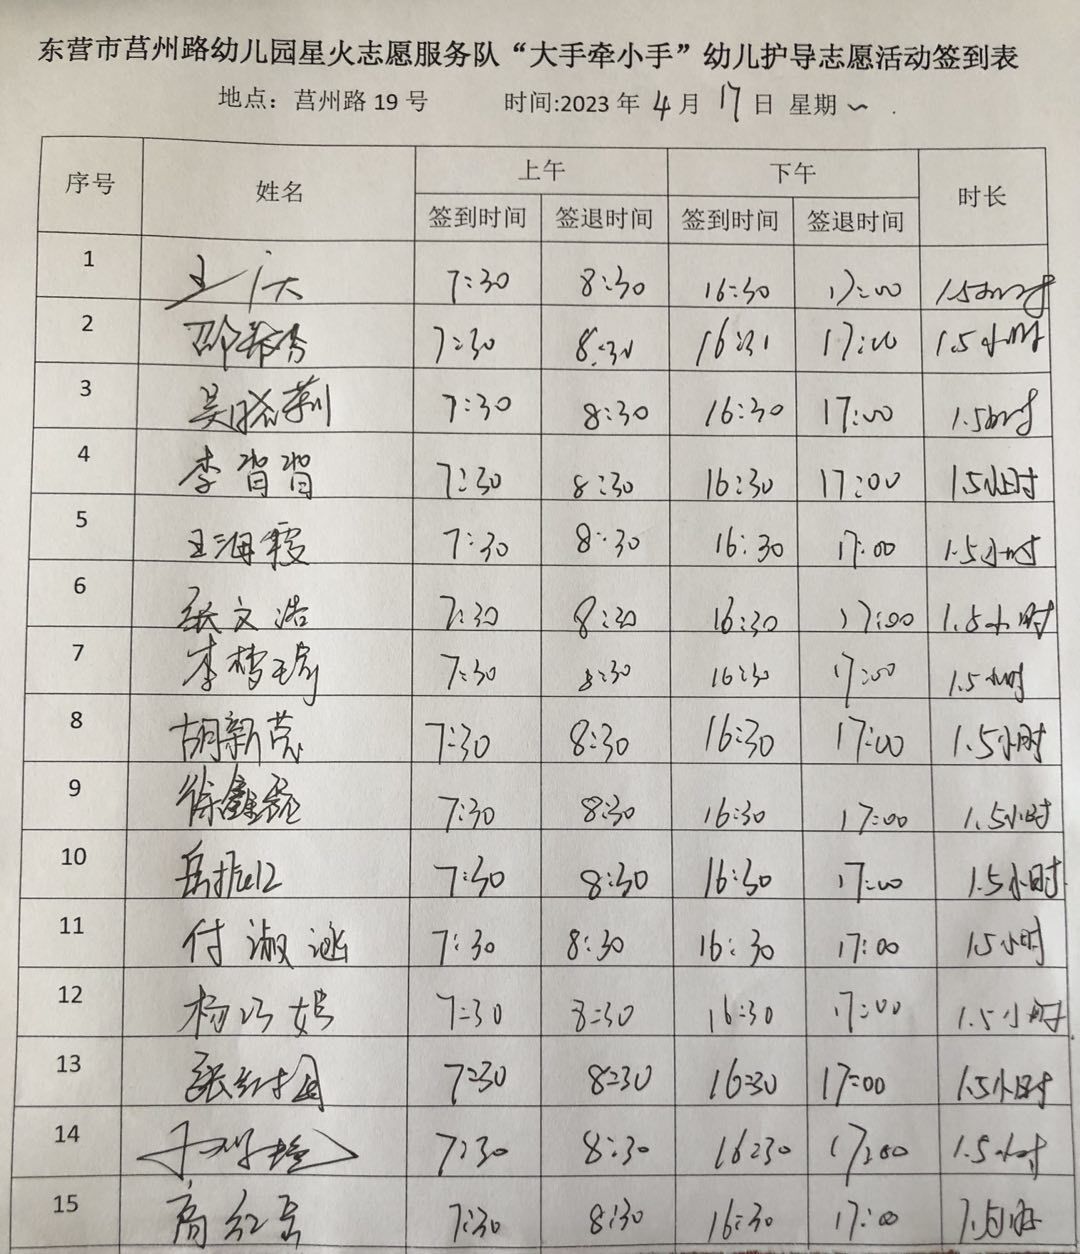 东营市莒州路幼儿园星火志愿服务队“大手牵小手”幼儿护导志愿活动签到表
地点：莒州路 19 号 时间:2023 年 4 月 17 日 星期 一
序号 姓名 上午 下午 时长
签到时间 签退时间 签到时间 签退时间
1 7:30 8:30 16:30 17:00 1.5小时
2 7:30 8:30 16:31 17:00 1.5小时
3 吴晓莉 7:30 8:30 16:30 17:00 1.5小时
4 李 7:30 8:30 16:30 17:00 1.5小时
5 王海霞 7:30 8:30 16:30 17:00 1.5小时
6 张文浩 7:30 8:30 16:30 17:00 1.5小时
7 李梦瑶 7:30 8:30 16:30 17:00 1.5小时
8 胡新苊 7:30 8:30 16:30 17:00 1.5小时
9 徐鑫磊 7:30 8:30 16:30 17:00 1.5小时
10 岳振江 7:30 8:30 16:30 17:00 1.5小时
11 付淑涵 7:30 8:30 16:30 17:00 1.5小时
12 杨巧娟 7:30 8:30 16:30 17:00 1.5小时
13 张红娟 7:30 8:30 16:30 17:00 1.5小时
14 7:30 8:30 16:30 17:00 1.5小时
15 高红芸 7:30 8:30 16:30 17:00 1.5小时